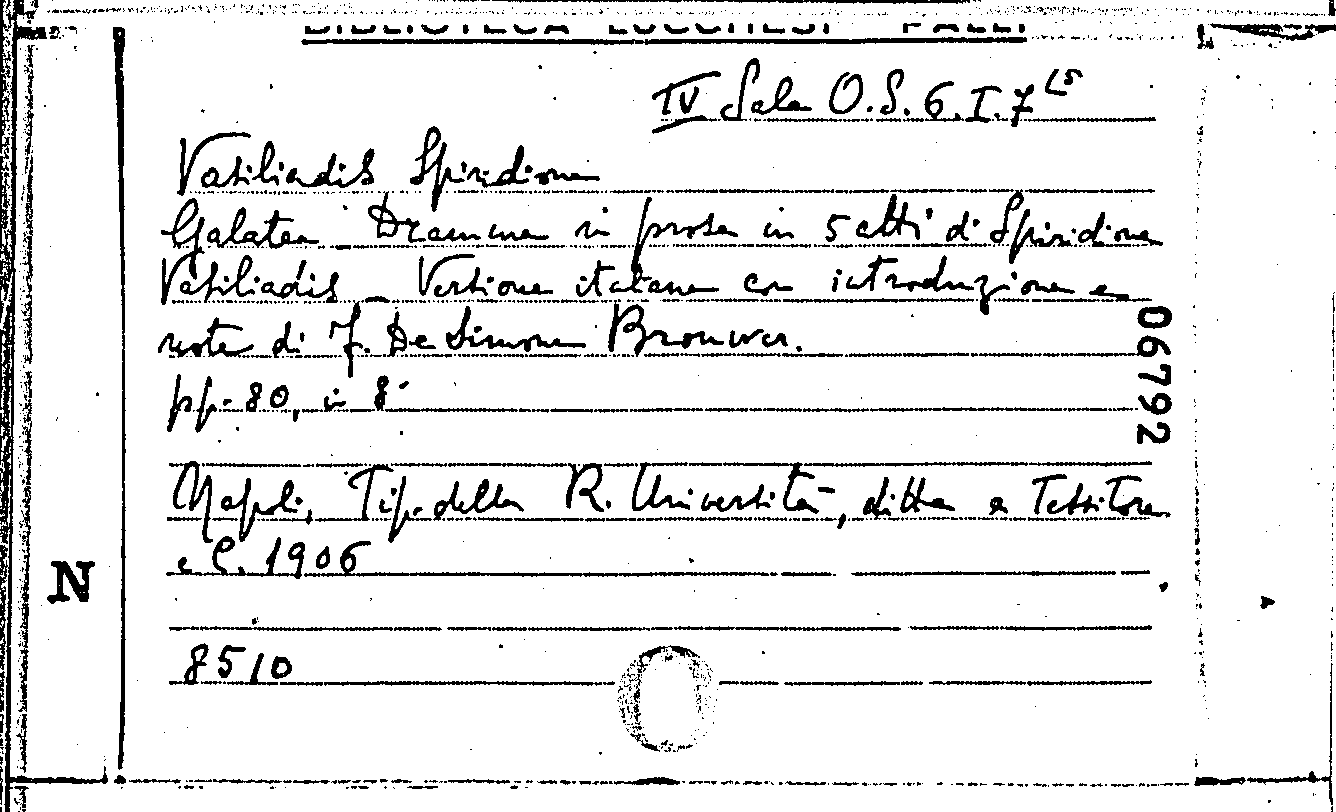 BIBLIOTECA LUCCHESI PALLI
IV Sala O.S. 6. I. 7 15
Vasiliadis Spiridione
Galatea _ Dramma in prosa in 5 atti di Spiridione
Vasiliadis _ Versione italiana con introduzione e
note di F. De Simone Brouwer.
pp. 80, in 8°
Napoli, Tip. della R. Università, ditta a Tessitore
e C. 1906
8510
06792
N